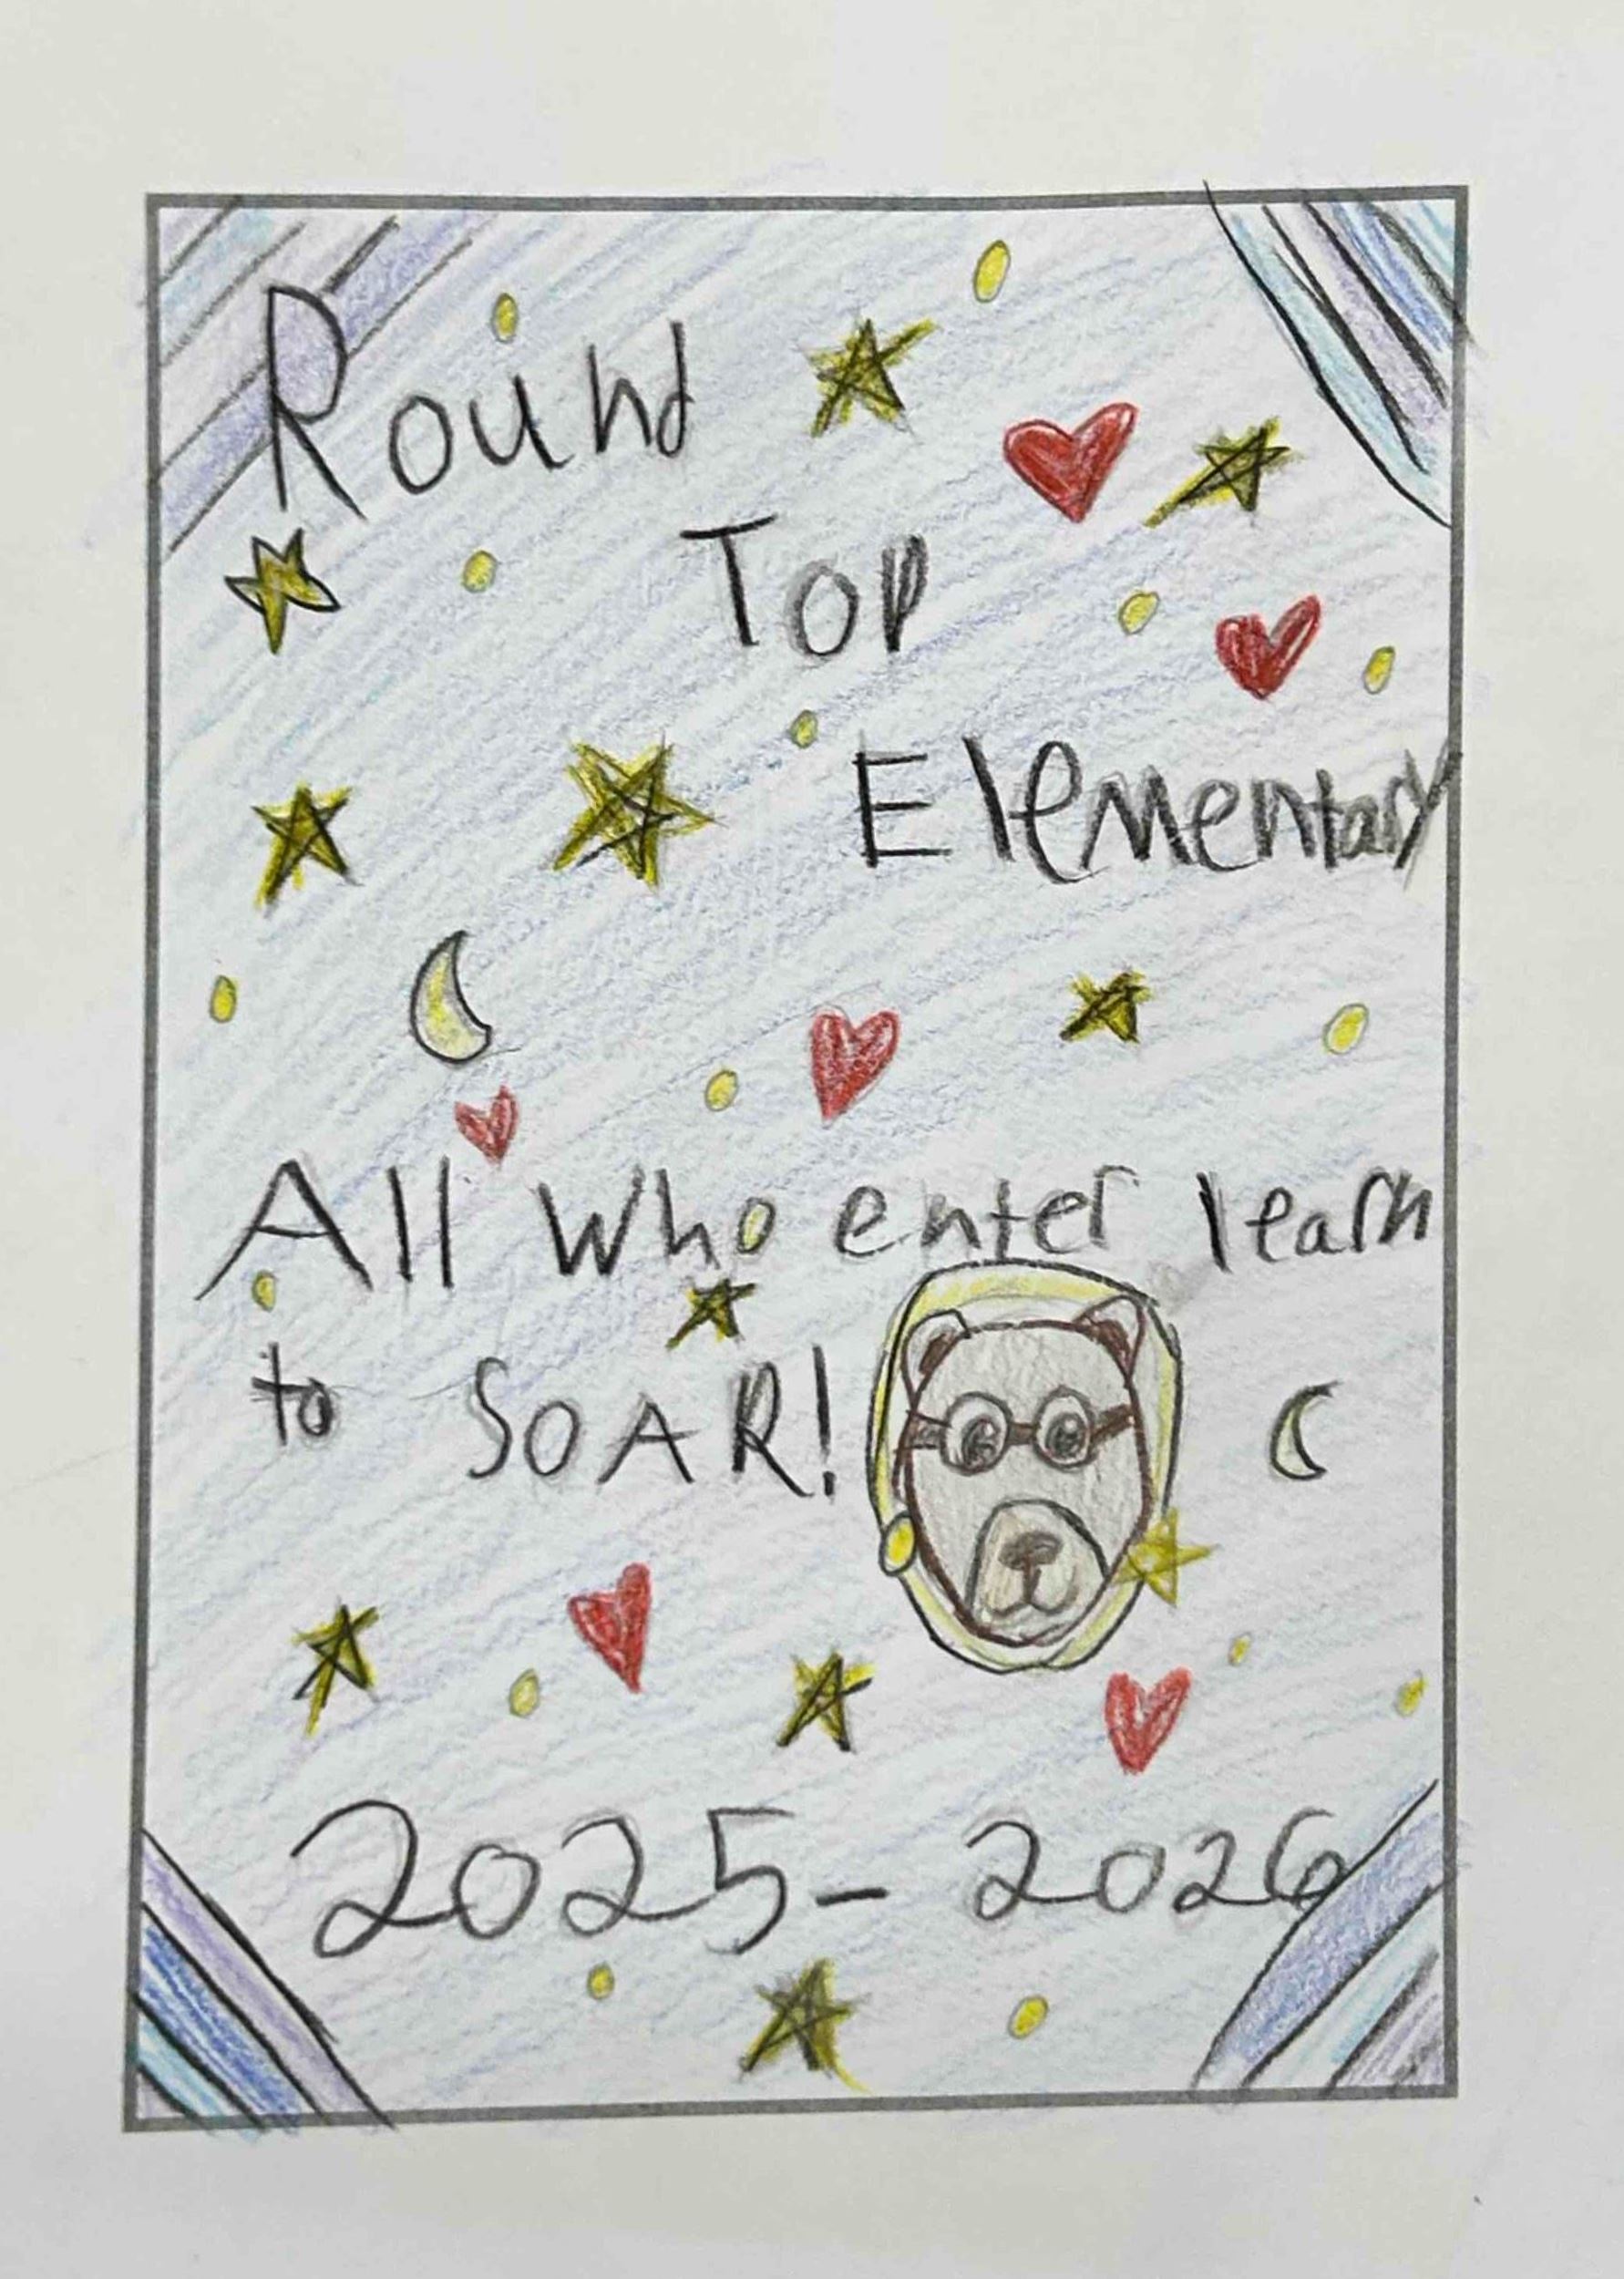 Round
Top
Elementary
All who enter learn
to SOAR!
2025-2026